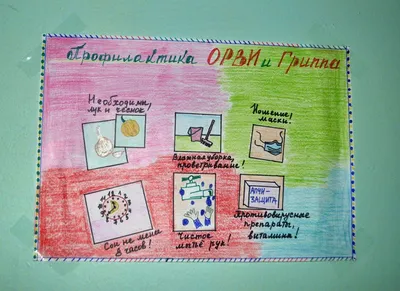 Профилактика ОРВИ и Гриппа
Необходимы,
лук и чеснок
Влажная уборка,
проветривание!
Ношение
маски!
Сон не менее
8 часов!
Чистое
мытьё рук!
АРВИ-
ЗАЩИТА
Противовирусные
препараты,
витамины!